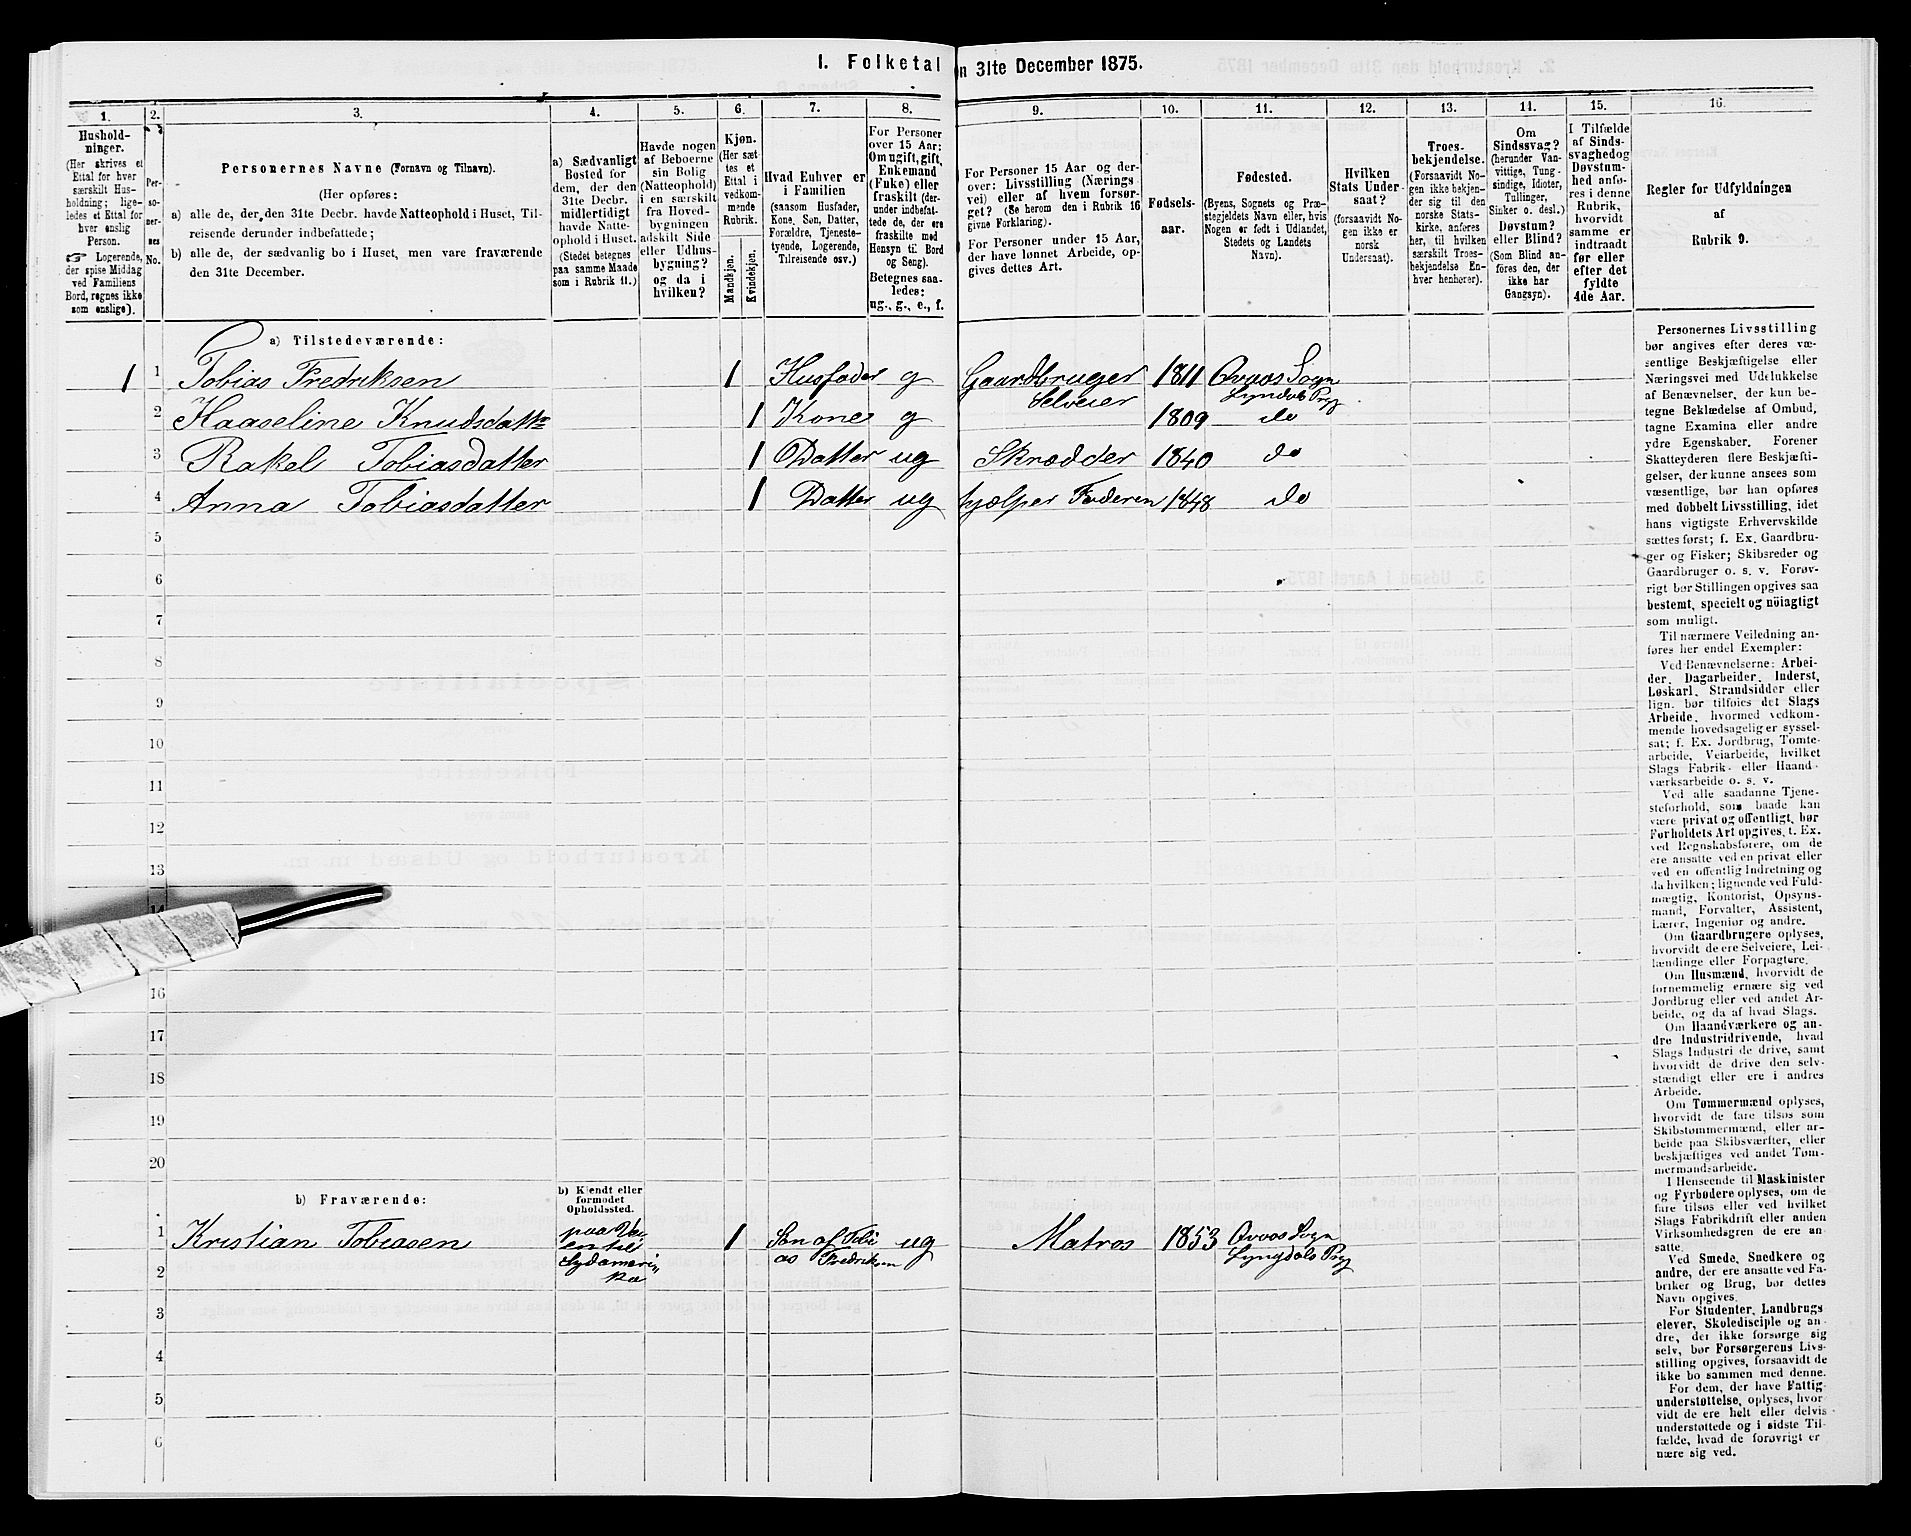 1. Folketal
n 31te December 1875.
1.
2.
3.
4.
5.
6.
7.
8.
9.
10.
11.
12.
13.
14.
15.
16.
Hushold-
ninger.
(Her skrives et
Ettal for hver
særskilt Hus-
holdning; lige-
ledes et Ettal for
hver enslig
Person.
☞ Logerende,
der spise Middag
ved Familiens
Bord, regnes ikke
som enslige).
Per-
so-
ner-
nes
No.
Personernes Navne (Fornavn og Tilnavn).
(Her opføres:
a) alle de, der den 31te Decbr. havde Natteophold i Huset, Til-
reisende derunder indbefattede;
b) alle de, der sædvanlig bo i Huset, men vare fraværende
den 31te December.
a) Sædvanligt
Bosted for
dem, der den
31te Decbr.
midlertidigt
havde Natte-
ophold i Huset.
(Stedet betegnes
paa samme Maade
som i Rubrik 11.)
Havde nogen
af Beboerne
sin Bolig
(Natteophold)
i en særskilt
fra Hoved-
bygningen
adskilt Side
eller Udhus-
bygning?
og da i
hvilken?
Kjøn.
(Her sæt-
tes et
Ettal i
vedkom-
mende
Rubrik.
Mandkjøn.
Kvindekjøn.
Hvad Enhver er
i Familien
(saasom Husfader,
Kone, Søn, Datter,
Forældre, Tjeneste-
tyende, Logerende,
Tilreisende osv.)
For Personer
over 15 Aar:
Om ugift, gift,
Enkemand
(Enke) eller
fraskilt (der-
under indbefat-
tede de, der ere
fraskilte med
Hensyn til Bord
og Seng).
Betegnes saa-
ledes:
ug., g., e., f.
For Personer 15 Aar og der-
over: Livsstilling (Nærings
vei) eller af hvem forsør-
get? (Se herom den i Rubrik 16
givne Forklaring).
For Personer under 15 Aar,
der have lønnet Arbeide, op-
gives dettes Art.
Fødsels-
aar.
Fødested.
(Byens, Sognets og Præ-
stegjeldets Navn eller, hvis
Nogen er født i Udlandet,
Stedets og Landets
Navn).
Hvilken
Stats Under-
saat?
(forsaavidt No-
gen ikke er
norsk
Undersaat).
Troes-
bekjendelse.
(Forsaavidt No-
gen ikke bekjen-
der sig til den
norske Stats-
kirke, anføres
her, til hvilken
særskilt Troes-
bekjendelse En-
hver henhører).
Om
Sindssvag?
(herunder Van-
vittige, Tung-
sindige, Idioter,
Tullinger,
Sinker o. desl.)
Døvstum?
eller Blind?
(Som Blind an-
føres den, der
ikke har
Gangsyn).
I Tilfælde
af Sinds-
svaghed og
Døvstum-
hed anfø-
res i denne
Rubrik,
hvorvidt
samme er
indtraadt
før eller
efter det
fyldte
4de Aar.
Regler for Udfyldningen
af
Rubrik 9.
a) Tilstedeværende:
1 1 Tobias Fredriksen 1 Husfader g Gaardbruger 1811 Qvaas Sogn
Selveier Lyndals Prg
2 Haaseline Knudsdatter 1 Kone g 1809 do
3 Rakel Tobiasdatter 1 Datter ug Skrædder 1840 do
4 Anna Tobiasdatter 1 Datter ug hjælper Faderen 1848 do
5
6
7
8
9
10
11
12
13
14
16
17
18
19
20
b) Fraværende:
b) Kjendt eller
formodet
Opholdssted.
1 Kristian Tobiasen paa Vei 1 Søn af Tobi ug Matros 1853 Qvaas Sogn
en til as Fredriksen Lyngdals Prg
2 Sydameri
ka
3
4
5
6
Personernes Livsstilling
bør angives efter deres væ-
sentlige Beskjæftigelse eller
Næringsvei med Udelukkelse
af Benævnelser, der kun be-
tegne Beklædelse af Ombud,
tagne Examina eller andre
ydre Egenskaber. Forener
Skatteyderen flere Beskjæfti-
gelser, der kunne ansees som
væsentlige, bør han opføres
med dobbelt Livsstilling, idet
hans vigtigste Erhvervskilde
sættes først; f. Ex. Gaardbru-
ger og Fisker; Skibsreder og
Gaardbruger o. s. v. Forøv-
rigt bør Stillingen opgives saa
bestemt, specielt og nöiagtigt
som muligt.
Til nærmere Veiledning an-
føres her endel Exempler:
Ved Benævnelserne: Arbei-
der, Dagarbeider, Inderst,
Løskarl, Strandsidder eller
lign. bør tilføies det Slags
Arbeide, hvormed vedkom-
mende hovedsagelig er syssel-
sat; f. Ex. Jordbrug, Tomte-
arbeide, Veiarbeide, hvilket
Slags Fabrik- eller Haand-
værksarbeide o. s. v.
Ved alle saadanne Tjene-
steforhold, som baade kan
være privat og offentligt, bør
Forholdets Art opgives, t. Ex.
ved Regnskabsførere, om de
ere ansatte ved en privat eller
ved en offentlig Indretning og
da hvilken; lignende ved Fuld-
mægtig, Kontorist, Opsyns-
mand, Forvalter, Assistent,
Lærer, Ingeniør og andre.
Om Gaardbrugere oplyses,
hvorvidt de ere Selveiere, Lei-
lændinge eller Forpagtere.
Om Husmænd, hvorvidt de
fornemmelig ernære sig ved
Jordbrug eller ved andet Ar-
beide, og da af hvad Slags.
Om Haandværkere og an-
dre Industridrivende, hvad
Slags Industri de drive, samt
hvorvidt de drive den selv-
stændigt eller ere i andres
Arbeide.
Om Tømmermænd oplyses,
hvorvidt de fare tilsøs som
Skibstømmermænd, eller ar-
beide paa Skibsværfter, eller
beskjæftiges ved andet Tøm-
mermandsarbeide.
I Henseende til Maskinister
og Fyrbødere oplyses, om de
fare tilsøs eller ved hvilket
Slags Fabrikdrift eller anden
Virksomhedsgren de ere an-
satte.
Ved Smede, Snedkere og
andre, der ere ansatte ved Fa-
briker og Brug, bør dettes
Navn opgives.
For Studenter, Landbrugs
elever, Skoledisciple og an-
dre, der ikke forsørge sig
selv, bør Forsørgerens Livs-
stilling opgives, forsaavidt de
ikke bo sammen med denne.
For dem, der have Fattig-
understøttelse, oplyses, hvor-
vidt de ere helt eller delvis
understøttede og i sidste Til-
fælde, hvad de forøvrigt er
nære sig ved.